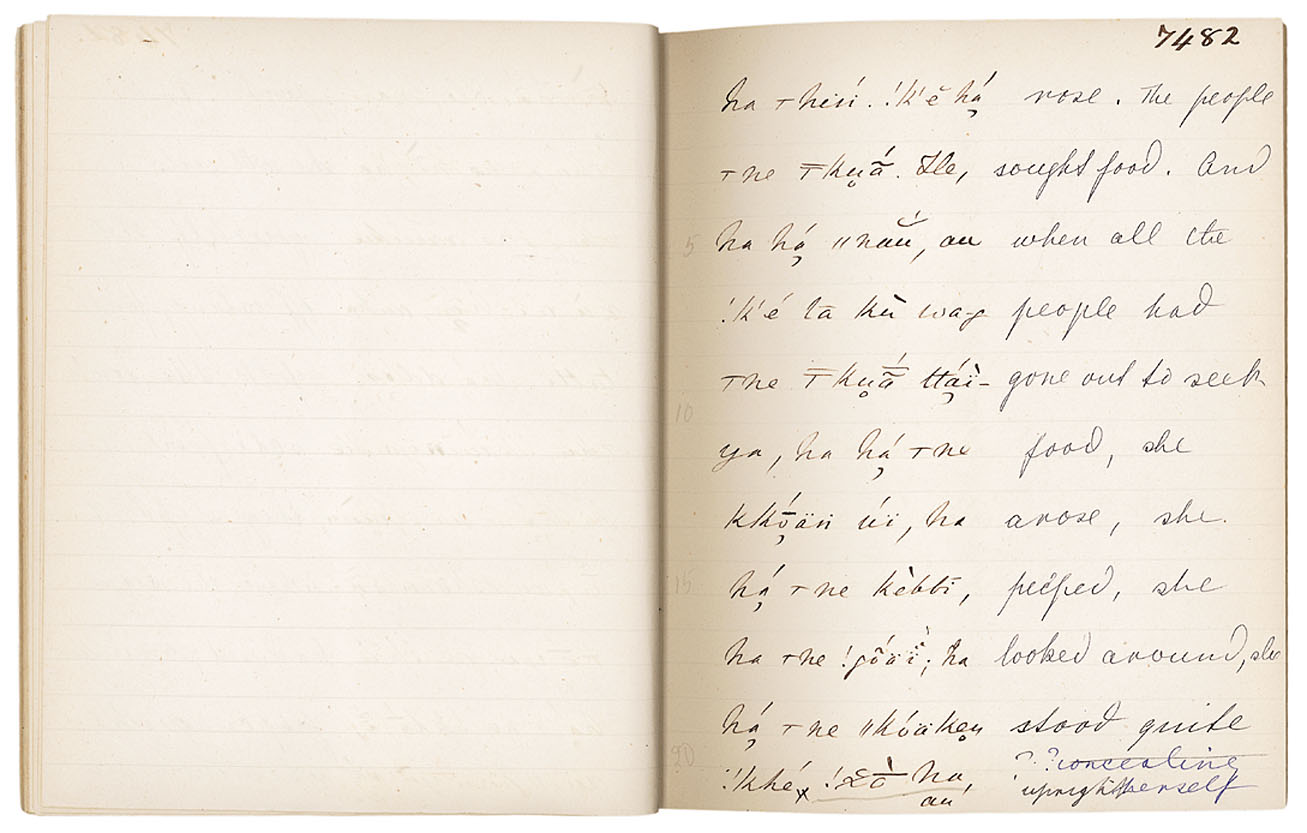 7482
ha ⊤hiń. !k'ĕ há̦ rose. The people
⊤ne ⊤̄kụã́. Ile, sought food. And
5 ha há̦ ǁnău, au when all the
!k'é ta kù wa-g people had
⊤ne ⊤̄kụã́ ttá̦ï- gone out to seek
10
ya, ha há̦ ⊤ne food, she
kkṓ̦äń úï, ha arose, she.
15 há̦ ⊤ne kèbbi, peeped, she
ha ⊤ne ; ha looked around, she
há̦ ⊤ne ǁkóäke̥n stood quite
20 !khé, ha, ??concealing
au upright herself